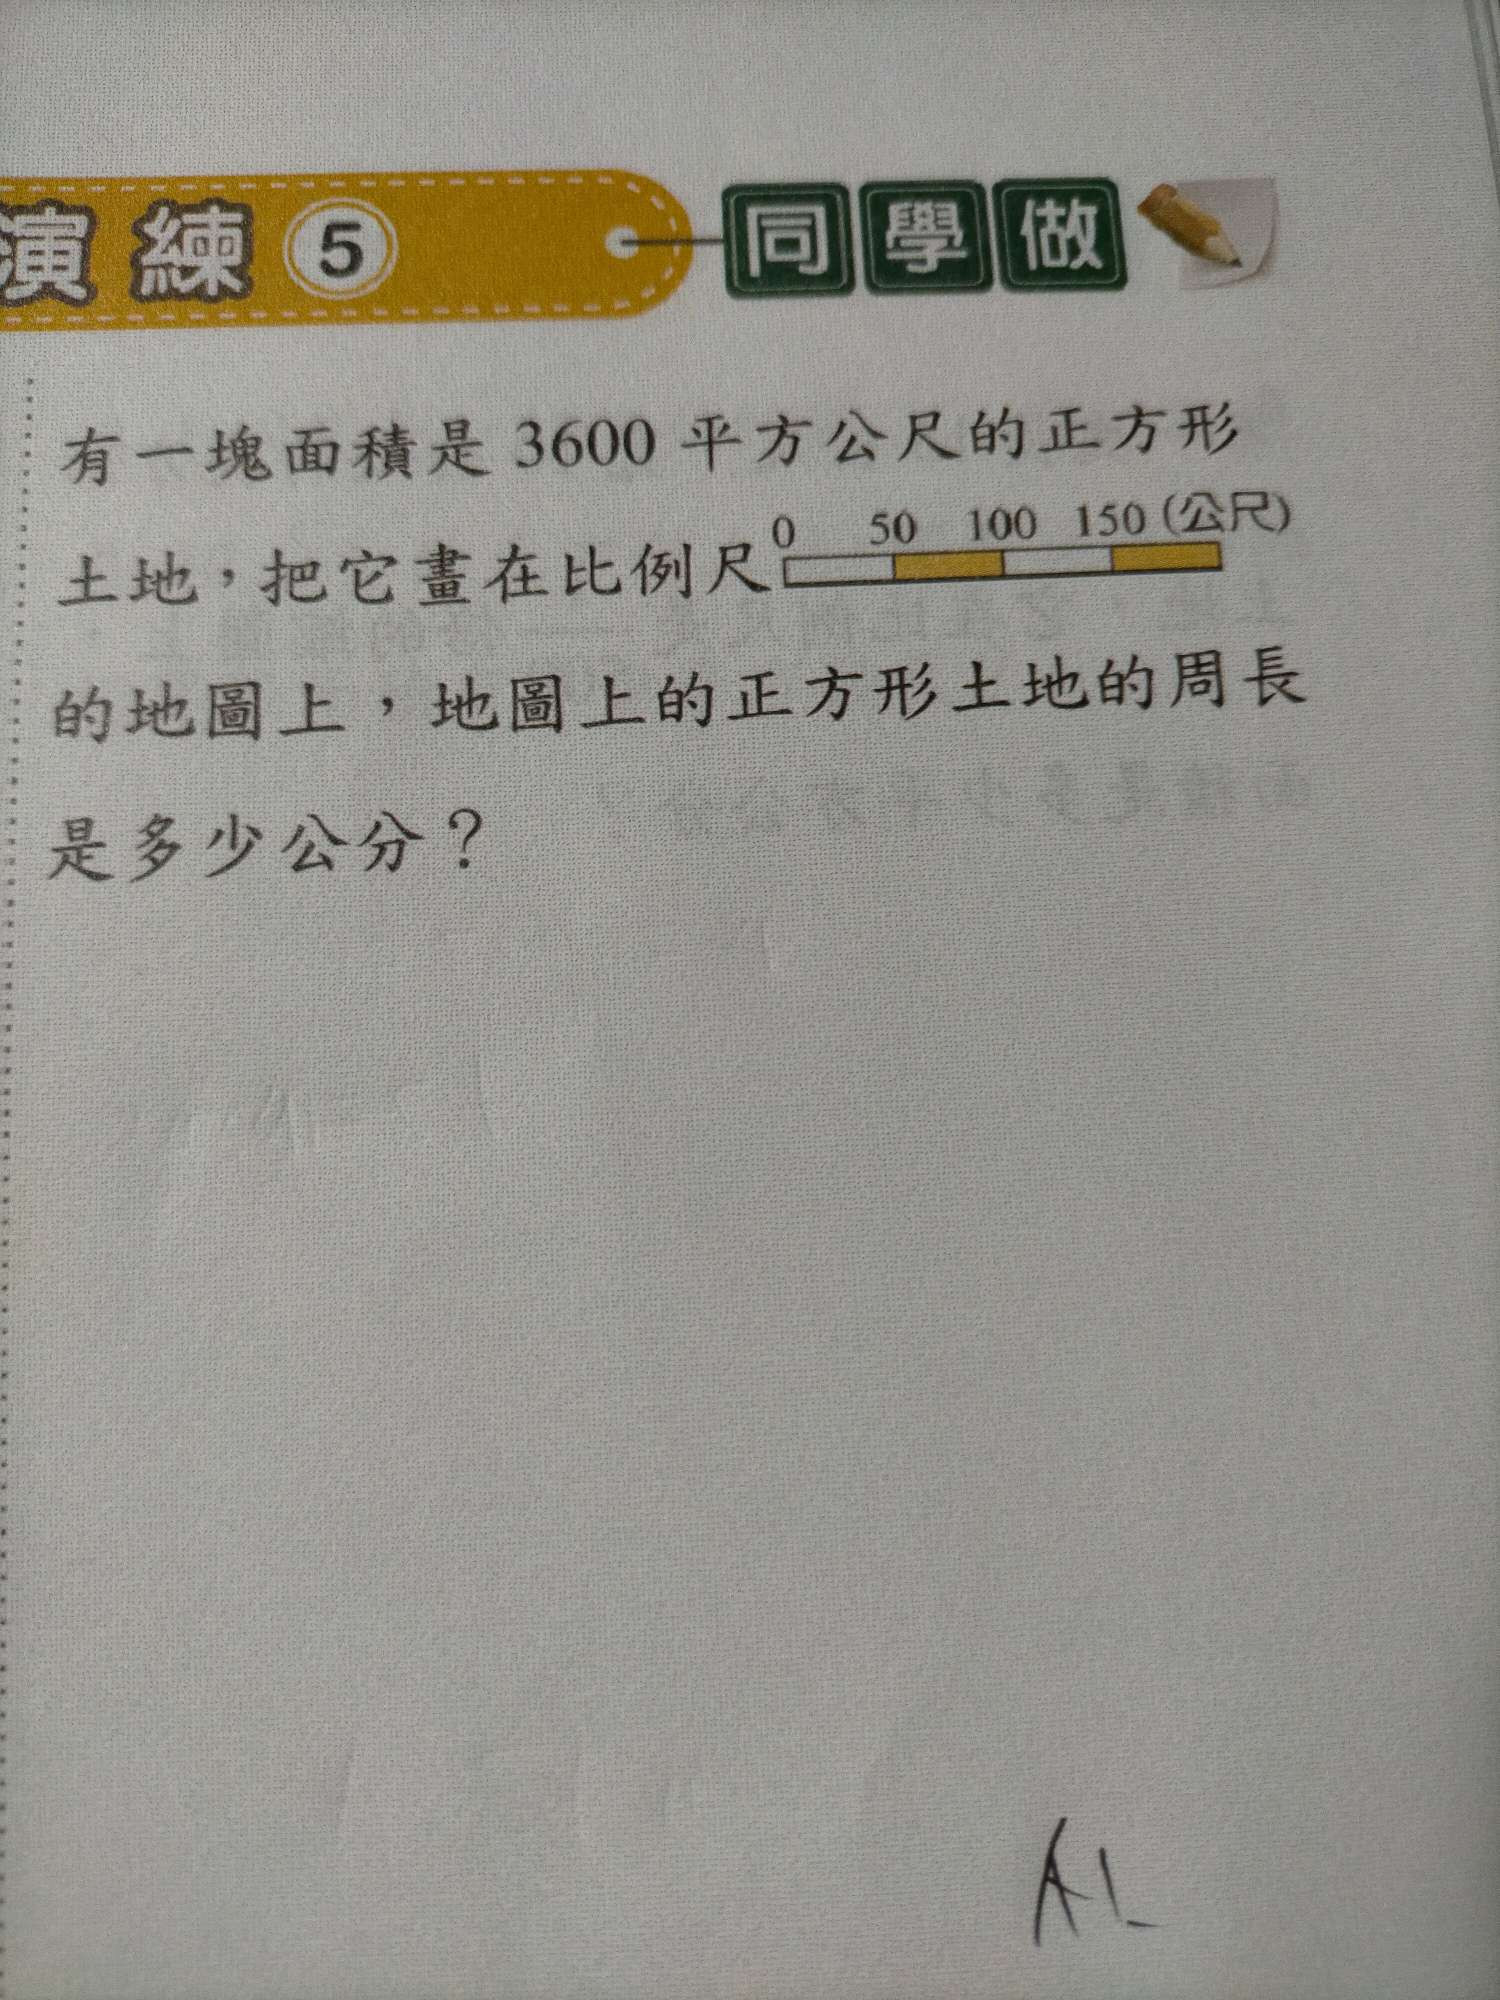 演練5 同學做
有一塊面積是3600平方公尺的正方形
0 50 100 150(公尺)
土地，把它畫在比例尺
的地圖上，地圖上的正方形土地的周長
是多少公分？